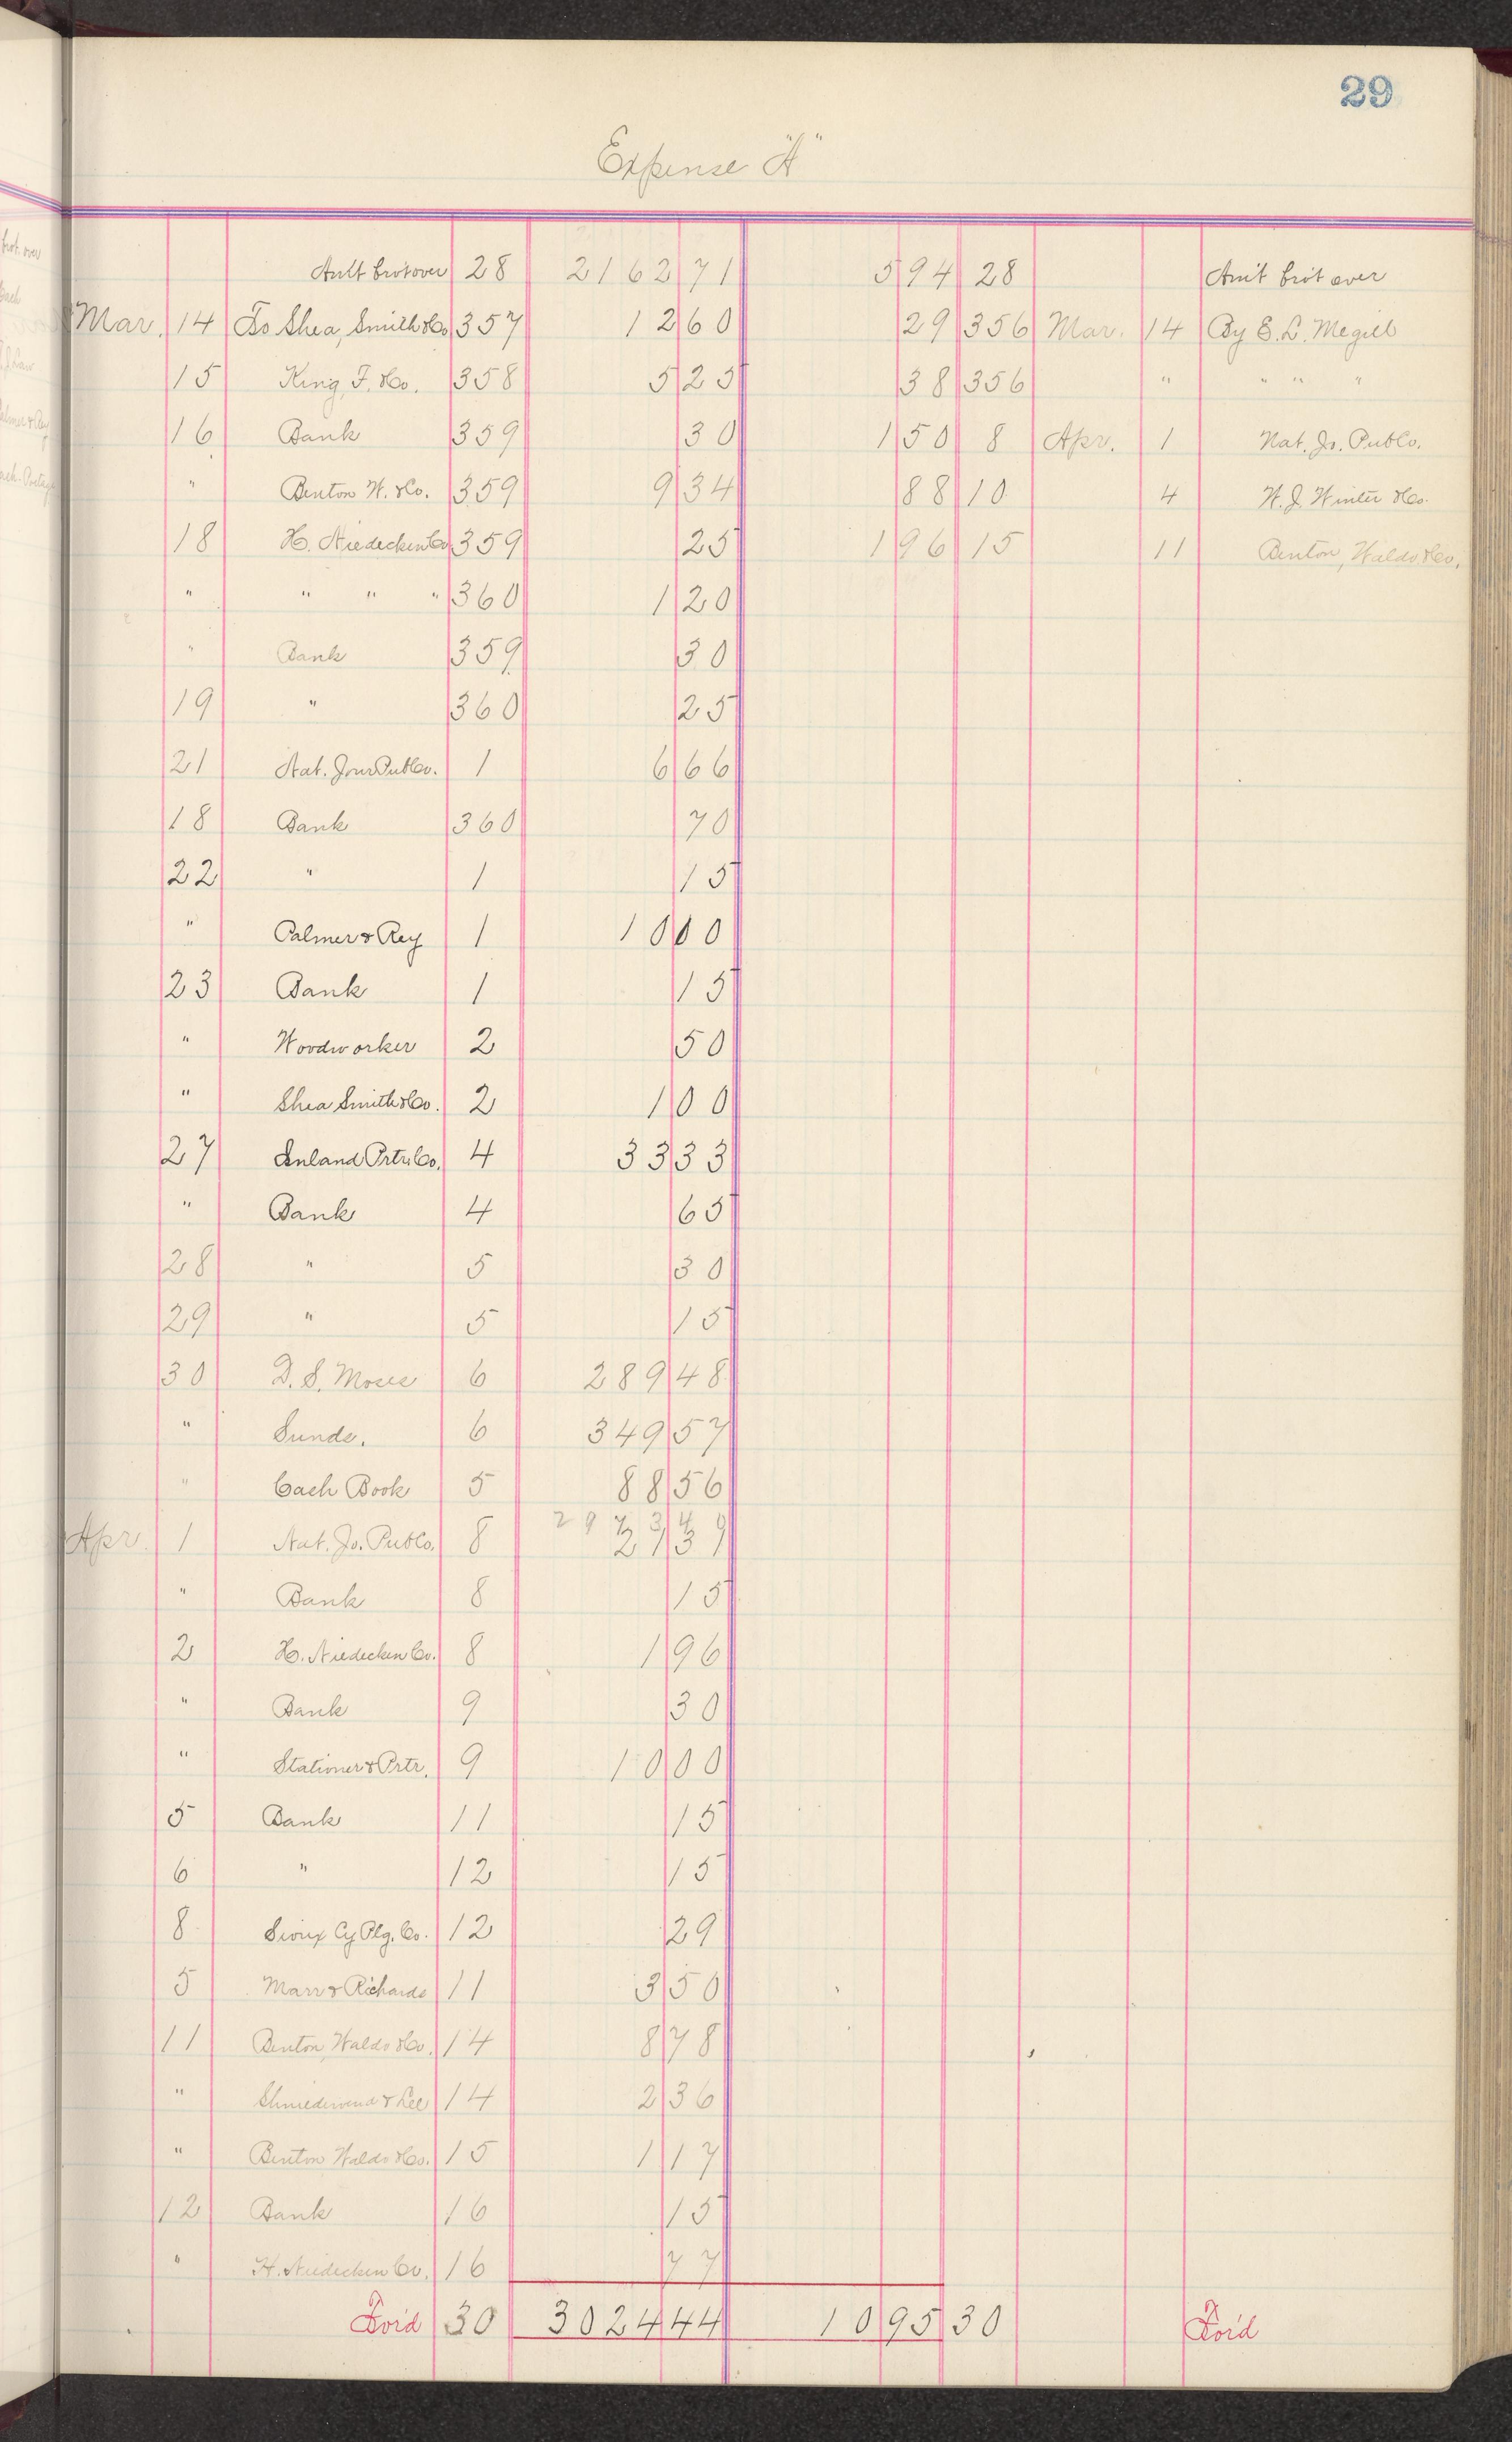 29
Expense "A"
Am't brot over 28 2162 71 5 94 28 Am't brot over
Mar. 14 To Shea, Smith &Co 357 12 60 29 356 Mar. 14 By E. L. Megill
15 King, F. &Co. 358 5 25 38 356 " " " "
16 Bank 359 30 1 50 8 Apr. 1 Nat. Jo. Pub Co.
" Benton W. &Co. 359 9 34 88 10 4 W. J. Winter &Co.
18 H. Niedecken Co 359 25 1 96 15 11 Benton, Waldo &Co.
" " " " 360 1 20
" Bank 359 30
19 " 360 25
21 Nat. Jour Pub Co. 1 6 66
18 Bank 360 70
22 " 1 15
" Palmer & Rey 1 10 00
23 Bank 1 15
" Woodworker 2 50
" Shea Smith &Co. 2 1 00
27 Inland Prtr. Co. 4 33 33
" Bank 4 65
28 " 5 30
29 " 5 15
30 D. S. Moses 6 289 48
" Sunds. 6 349 57
" Cash Book 5 88 56
Apr. 1 Nat. Jo. Pub Co. 8 21 31
" Bank 8 15
2 H. Niedecken Co. 8 1 96
" Bank 9 30
" Stationer & Prtr. 9 10 00
5 Bank 11 15
6 " 12 15
8 Sioux Cy Plg. Co. 12 29
5 Marr & Richards 11 3 50
11 Benton, Waldo &Co. 14 8 78
" Shniedewend & Lee 14 2 36
" Benton Waldo &Co. 15 1 17
12 Bank 16 15
" H. Niedecken Co. 16 77
For'd 30 3024 44 10 95 30 For'd